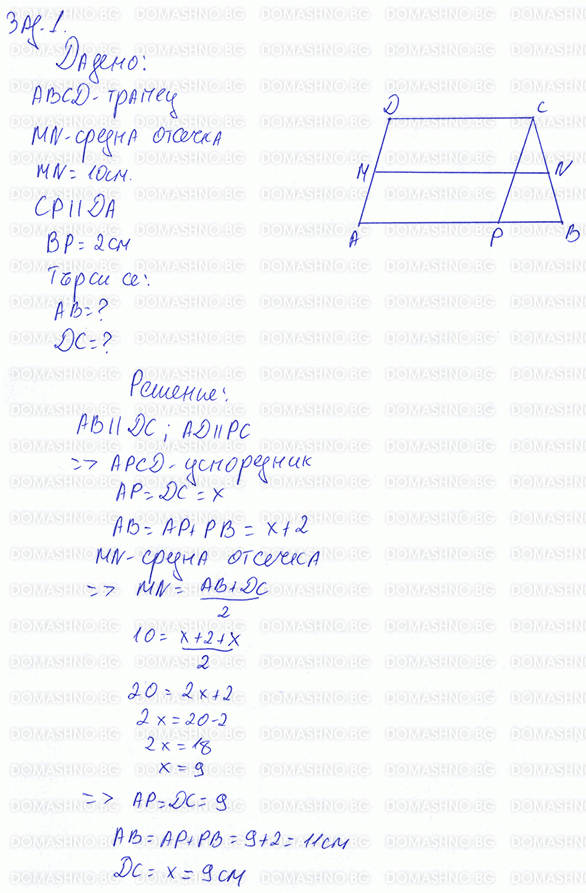 Зад. 1.
Дадено:
ABCD - трапец
MN - средна отсечка
MN = 10см.
CP || DA
BP = 2см
Търси се:
AB = ?
DC = ?
D C
M N
A P B
Решение:
AB || DC ; AD || PC
=> APCD - успоредник
AP = DC = x
AB = AP + PB = x + 2
MN - средна отсечка
=> MN = AB + DC
2
10 = x + 2 + x
2
20 = 2x + 2
2x = 20 - 2
2x = 18
x = 9
=> AP = DC = 9
AB = AP + PB = 9 + 2 = 11см
DC = x = 9см
DOMASHNO.BG